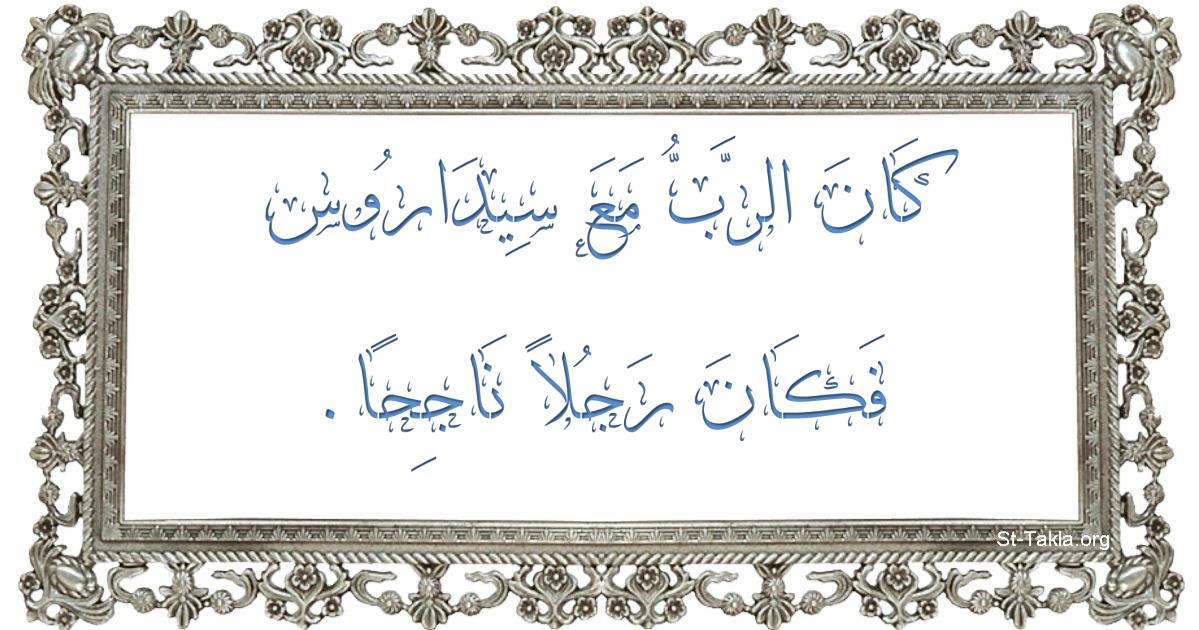 كَانَ الرَّبُّ مَعَ سِيْدَارُوس
فَكَانَ رَجُلاً نَاجِحًا .
St-Takla.org